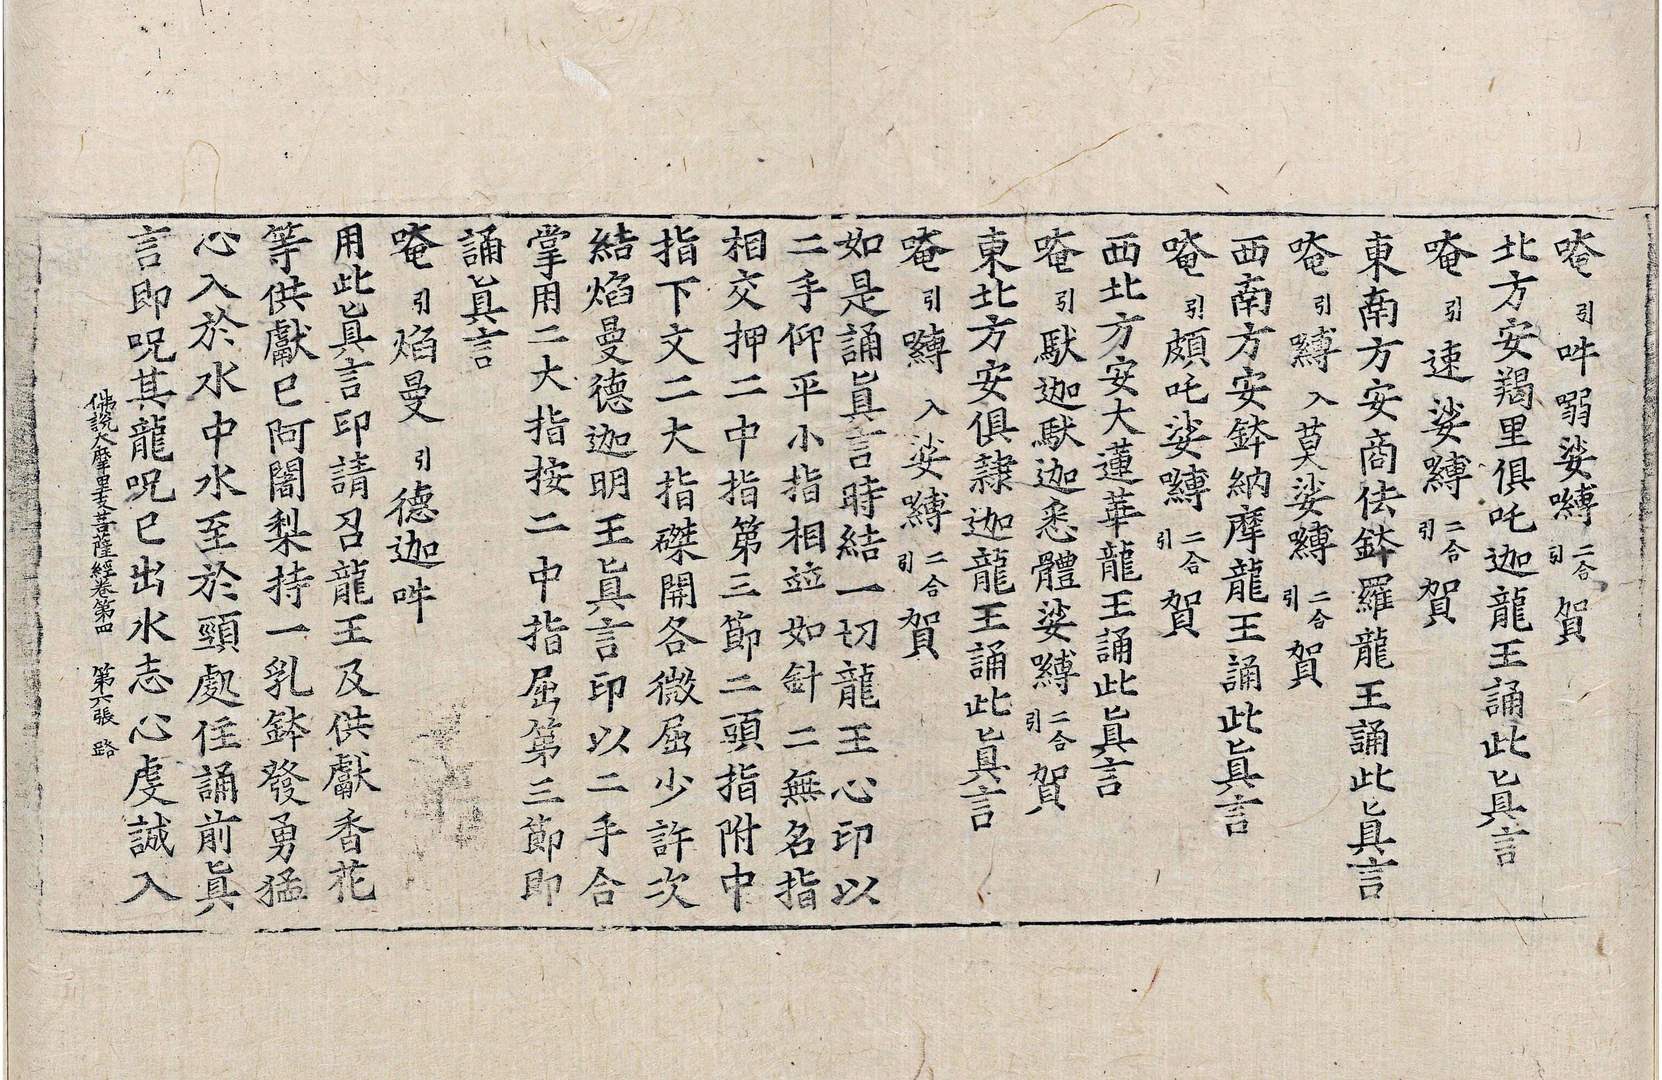 唵引吽嚩娑嚩二合引賀
北方安羯里俱吒迦龍王誦此真言
唵引速娑嚩二合引賀
東南方安商佉鉢羅龍王誦此真言
唵引嚩入莫娑嚩二合引賀
西南方安鉢納摩龍王誦此真言
唵引頗吒娑嚩二合引賀
西北方安大蓮華龍王誦此真言
唵引馱迦馱迦悉體娑嚩二合引賀
東北方安俱隷迦龍王誦此真言
唵引嚩入娑嚩二合引賀
如是誦真言時結一切龍王心印以
二手仰平小指相竝如針二無名指
相交押二中指第三節二頭指附中
指下文二大指磔開各微屈少許次
結焰曼德迦明王真言印以二手合
掌用二大指按二中指屈第三節即
誦真言
唵引焰曼引德迦吽
用此真言印請召龍王及供獻香花
等供獻已阿闍梨持一乳鉢發勇猛
心入於水中水至於頸處住誦前真
言即呪其龍呪已出水志心虔誠入
佛說大摩里支菩薩經卷第四 第六張 路